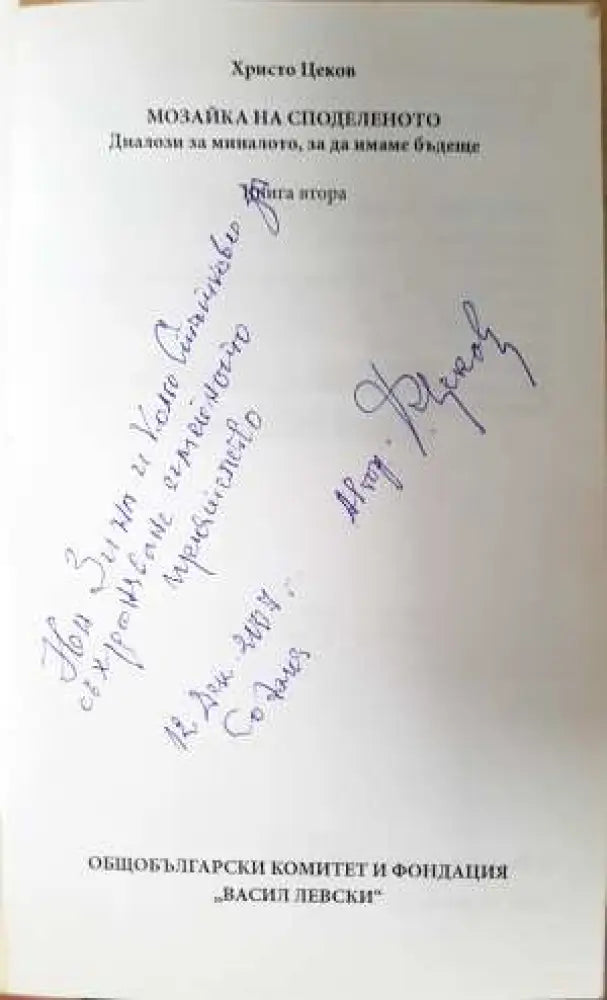 Христо Цеков
МОЗАЙКА НА СПОДЕЛЕНОТО
Диалози за миналото, за да имаме бъдеще
Книга втора
На Зина и
съхраняване семейното
приятелство
Автор: Цеков
12 Дек.
София
ОБЩОБЪЛГАРСКИ КОМИТЕТ И ФОНДАЦИЯ
„ВАСИЛ ЛЕВСКИ“